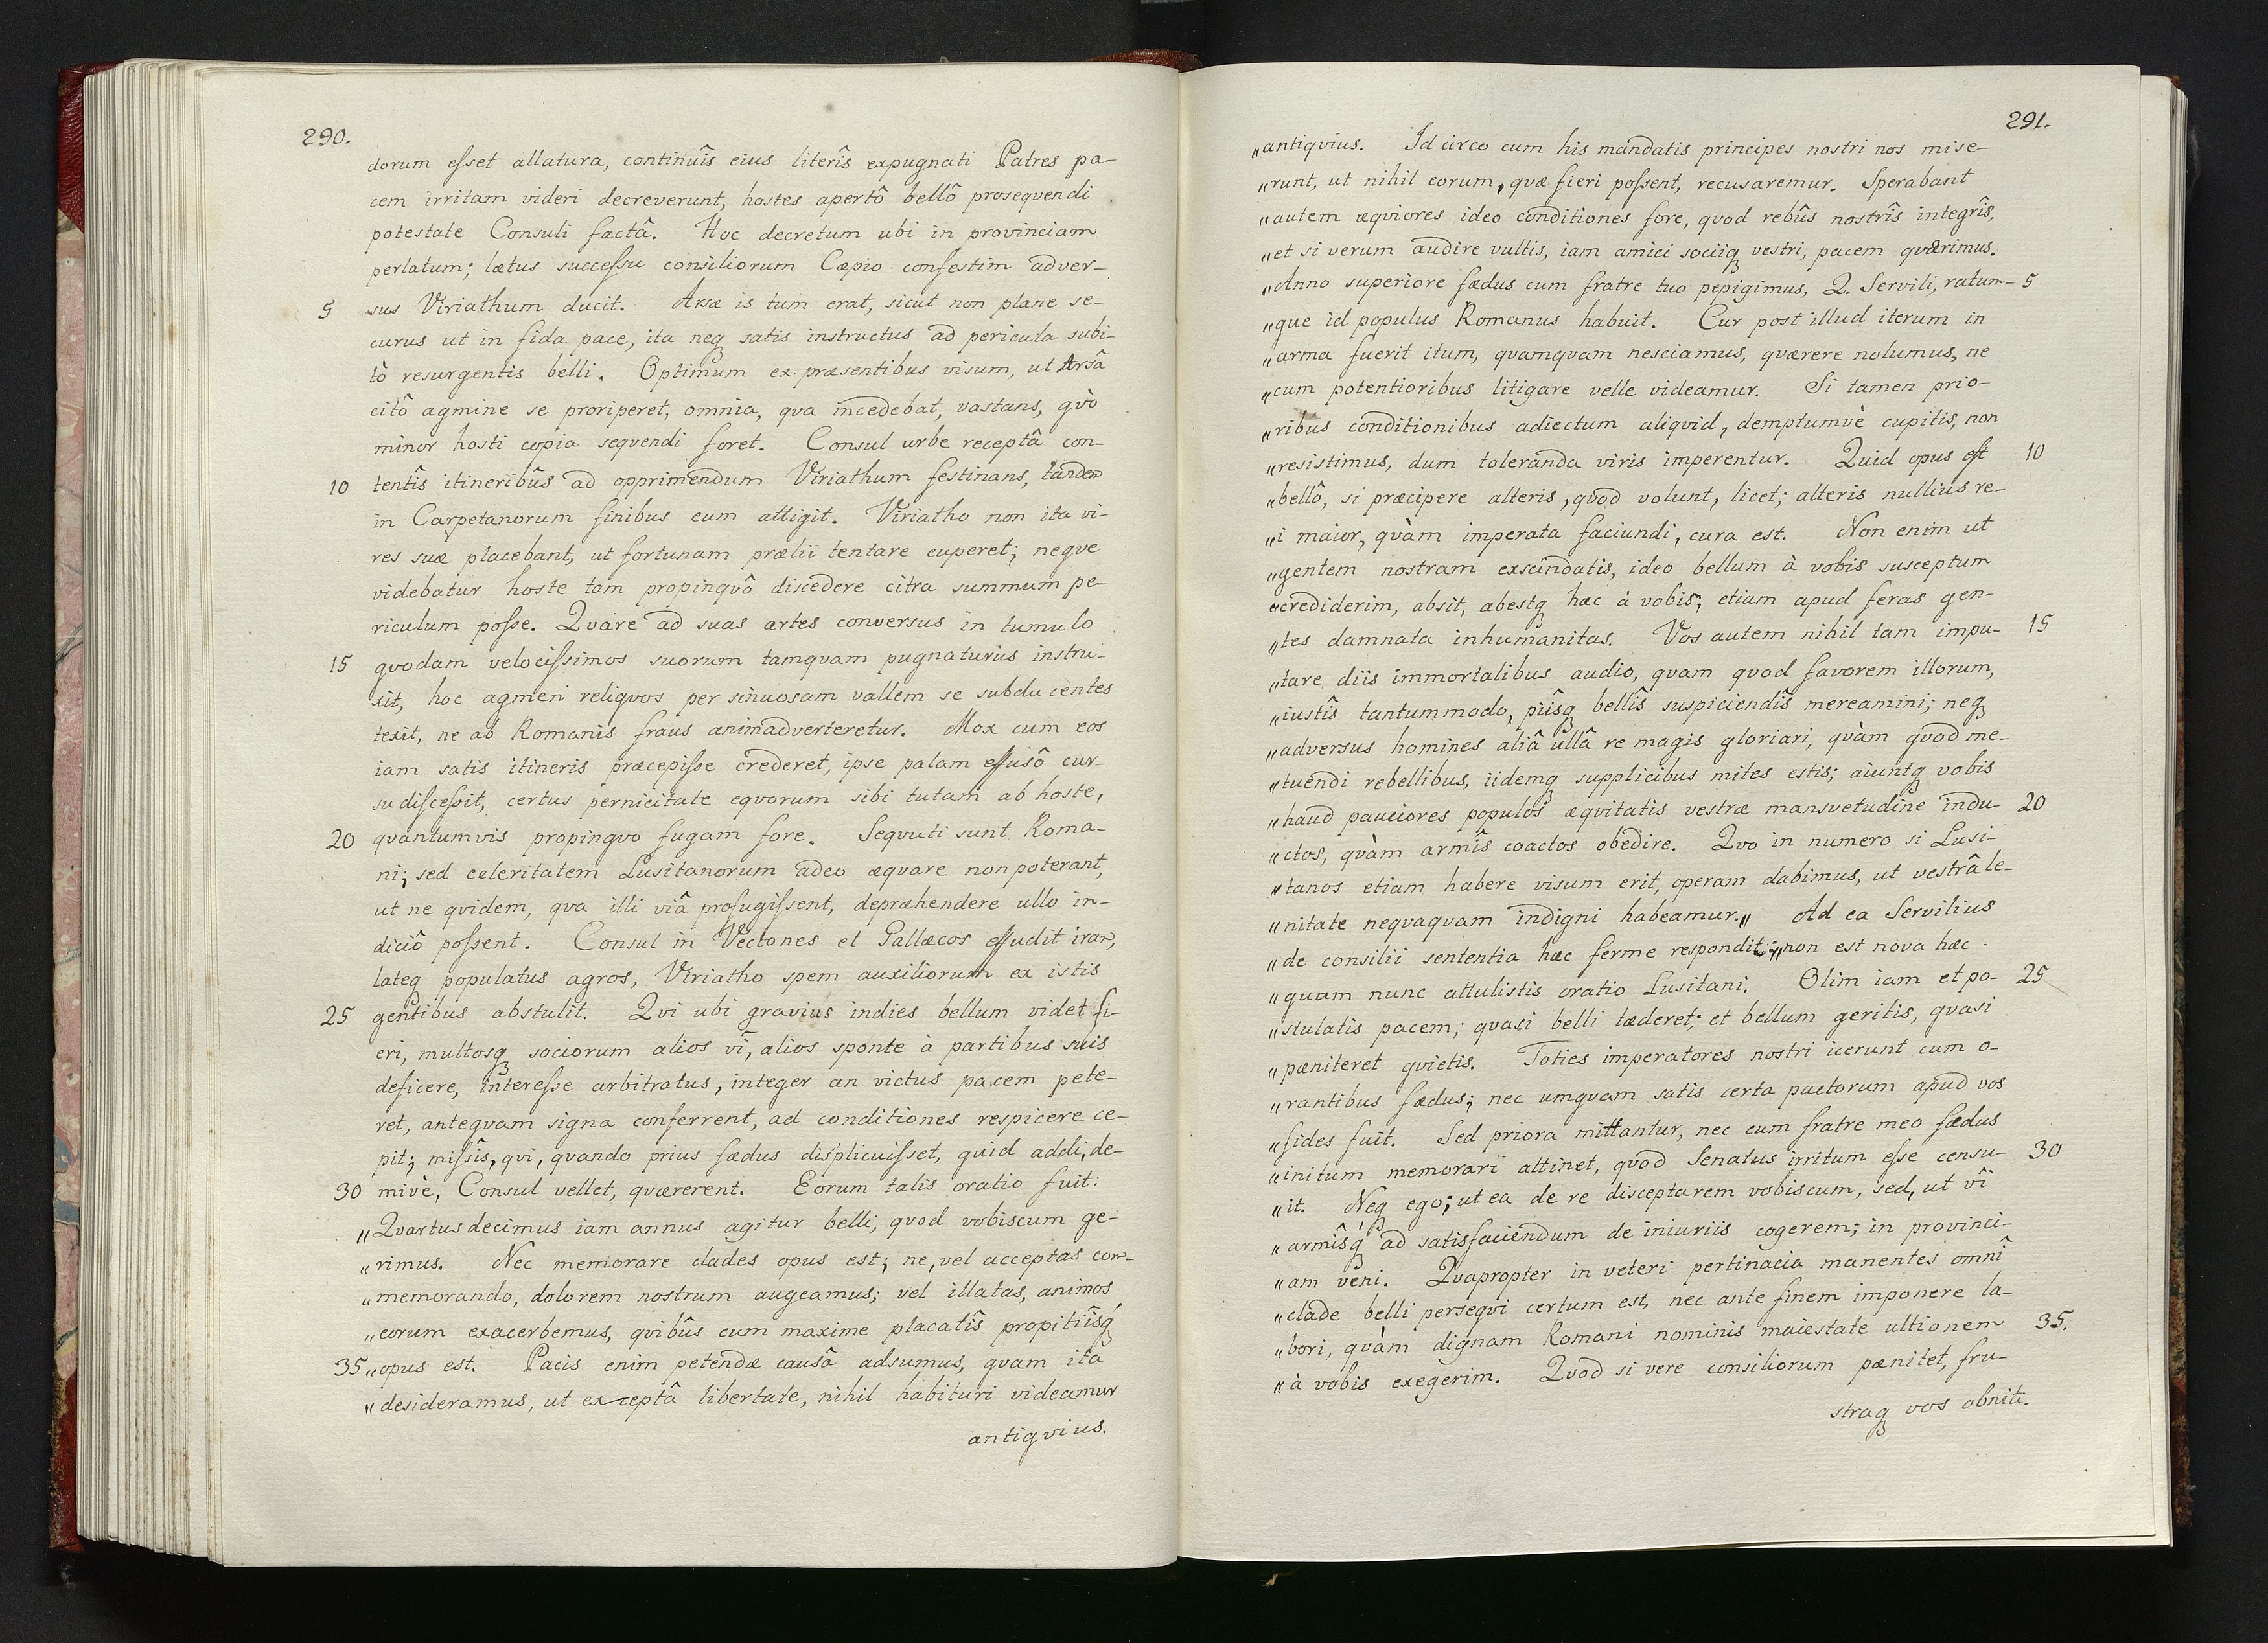 290.
dorum eſset allatura, continuîs eius literîs expugnati Patres pa-
cem irritam videri decreverunt, hostes apertô bellô proseqvendi
potestate Consuli factâ. Hoc decretum ubi in provinciam
perlatum; lætus succeſsu consiliorum Cæpio confestim adver-
5 sus Viriathum ducit. Arsæ is tum erat, sicut non plane se-
curus ut in fida pace, ita neq satis instructus ad pericula subi-
tò resurgentis belli. Optimum ex præsentibus visum, ut Arsâ
citô agmine se proriperet, omnia, qva incedebat, vastans, qvò
minor hosti copia seqvendi foret. Consul urbe receptâ con-
10 tentîs itineribûs ad opprimendum Viriathum festinans, tandem
in Carpetanorum finibus eum attigit. Viriatho non ita vi-
res suæ placebant, ut fortunam prælii tentare cuperet; neqve
videbatur hoste tam propinqvô discedere citra summum pe-
riculum poſse. Qvare ad suas artes conversus in tumulo
15 qvodam velociſsimos suorum tamqvam pugnaturus instru-
xit, hoc agmen reliqvos per sinuosam vallem se subducentes
texit, ne ab Romanis fraus animadverteretur. Mox cum eos
iam satis itineris præcepiſse crederet, ipse palam effusô cur-
su diſceſsit, certus pernicitate eqvorum sibi tutam ab hoste,
20 qvantumvis propinqvo fugam fore. Seqvuti sunt Roma-
ni; sed celeritatem Lusitanorum adeo æqvare non poterant,
ut ne qvidem, qva illi viâ profugiſsent, depræhendere ullo in-
diciô poſsent. Consul in Vectones et Gallæcos effudit iram,
lateq populatus agros, Viriatho spem auxiliorum ex istis
25 gentibus abstulit. Qvi ubi gravius indies bellum videt fi-
eri, multosq sociorum alios vî, alios sponte à partibus suis
deficere, intereſse arbitratus, integer an victus pacem pete-
ret, anteqvam signa conferrent, ad conditiones respicere ce-
pit; miſsîs, qvi, qvando prius fædus displicuiſset, qvid addi, de-
30 mivè, Consul vellet, qværerent. Eorum talis oratio fuit:
„Qvartus decimus iam annus agitur belli, qvod vobiscum ge-
„rimus. Nec memorare clades opus est; ne, vel acceptas com-
„memorando, dolorem nostrum augeamus; vel illatas, animos
„eorum exacerbemus, qvibûs cum maxime placatîs propitiîsq́
35 „opus est. Pacis enim petendæ causâ adsumus, qvam ita
„desideramus, ut exceptâ libertate, nihil habituri videamur
antiqvius.
291.
„antiqvius. Idcirco cum his mandatis principes nostri nos mise-
„runt, ut nihil eorum, qvæ fieri poſsent, recusaremur. Sperabant
„autem æqviores ideo conditiones fore, qvod rebûs nostrîs integrîs,
„et si verum audire vultis, iam amici sociiq vestri, pacem qværimus.
„Anno superiore fædus cum fratre tuo pepigimus, Q. Servili, ratum- 5
„que id populus Romanus habuit. Cur post illud iterum in
„arma fuerit itum, qvamqvam nesciamus, qværere nolumus, ne
„cum potentioribus litigare velle videamur. Si tamen prio-
„ribus conditionibus adiectum aliqvid, demptumvè cupitis, non
„resistimus, dum toleranda viris imperentur. Quid opus est 10
„bellô, si præcipere alteris, qvod volunt, licet; alteris nullius re-
„i maior, qvàm imperata faciundi, cura est. Non enim ut
„gentem nostram exscindatis, ideo bellum à vobis susceptum
„crediderim, absit, abestq hæc à vobis; etiam apud feras gen-
„tes damnata inhumanitas. Vos autem nihil tam impu- 15
„tare diis immortalibus audio, qvam qvod favorem illorum,
„iustîs tantummodo, piîsq bellîs suspiciendîs mereamini; neq
„adversus homines aliâ ullâ re magis gloriari, qvàm qvod me-
„tuendi rebellibus, iidemq supplicibus mites estis; aiuntq vobis
„haud pauciores populos æqvitatis vestræ mansvetudine indu- 20
„ctos, qvàm armîs coactos obedire. Qvo in numero si Lusi-
„tanos etiam habere visum erit, operam dabimus, ut vestrâ le-
„nitate neqvaqvam indigni habeamur.„ Ad ea Servilius
„de consilii sententia hæc ferme respondit: „non est nova hæc
„quam nunc attulistis oratio Lusitani. Olim iam et po- 25
„stulatis pacem; qvasi belli tæderet; et bellum geritis, qvasi
„pæniteret qvietis. Toties imperatores nostri icerunt cum o-
„rantibus fædus; nec umqvam satis certa pactorum apud vos
„fides fuit. Sed priora mittantur, nec cum fratre meo fædus
„initum memorari attinet, qvod Senatus irritum eſse censu- 30
„it. Neq ego; ut ea de re disceptarem vobiscum, sed, ut vî
„armîsq́ ad satisfaciendum de iniuriis cogerem; in provinci-
„am veni. Qvapropter in veteri pertinacia manentes omnî
„clade belli perseqvi certum est, nec ante finem imponere la-
„bori, qvàm dignam Romani nominis maiestate ultionem 35.
„à vobis exegerim. Qvod si vere consiliorum pænitet, fru-
straq vos obniti.